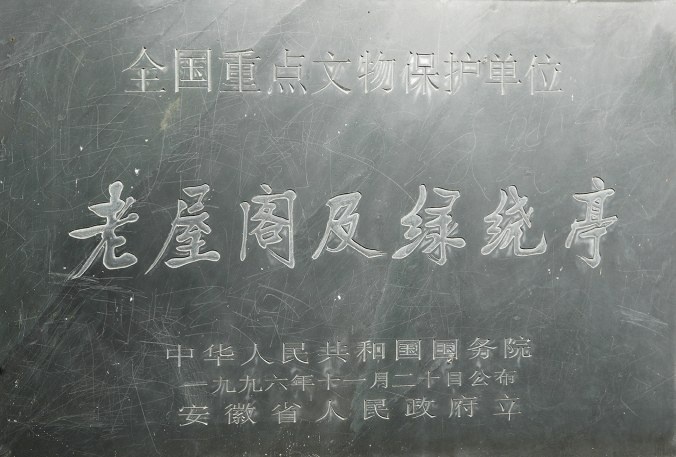 全国重点文物保护单位
老屋阁及绿绕亭
中华人民共和国国务院
一九九六年十一月二十日公布
安徽省人民政府立